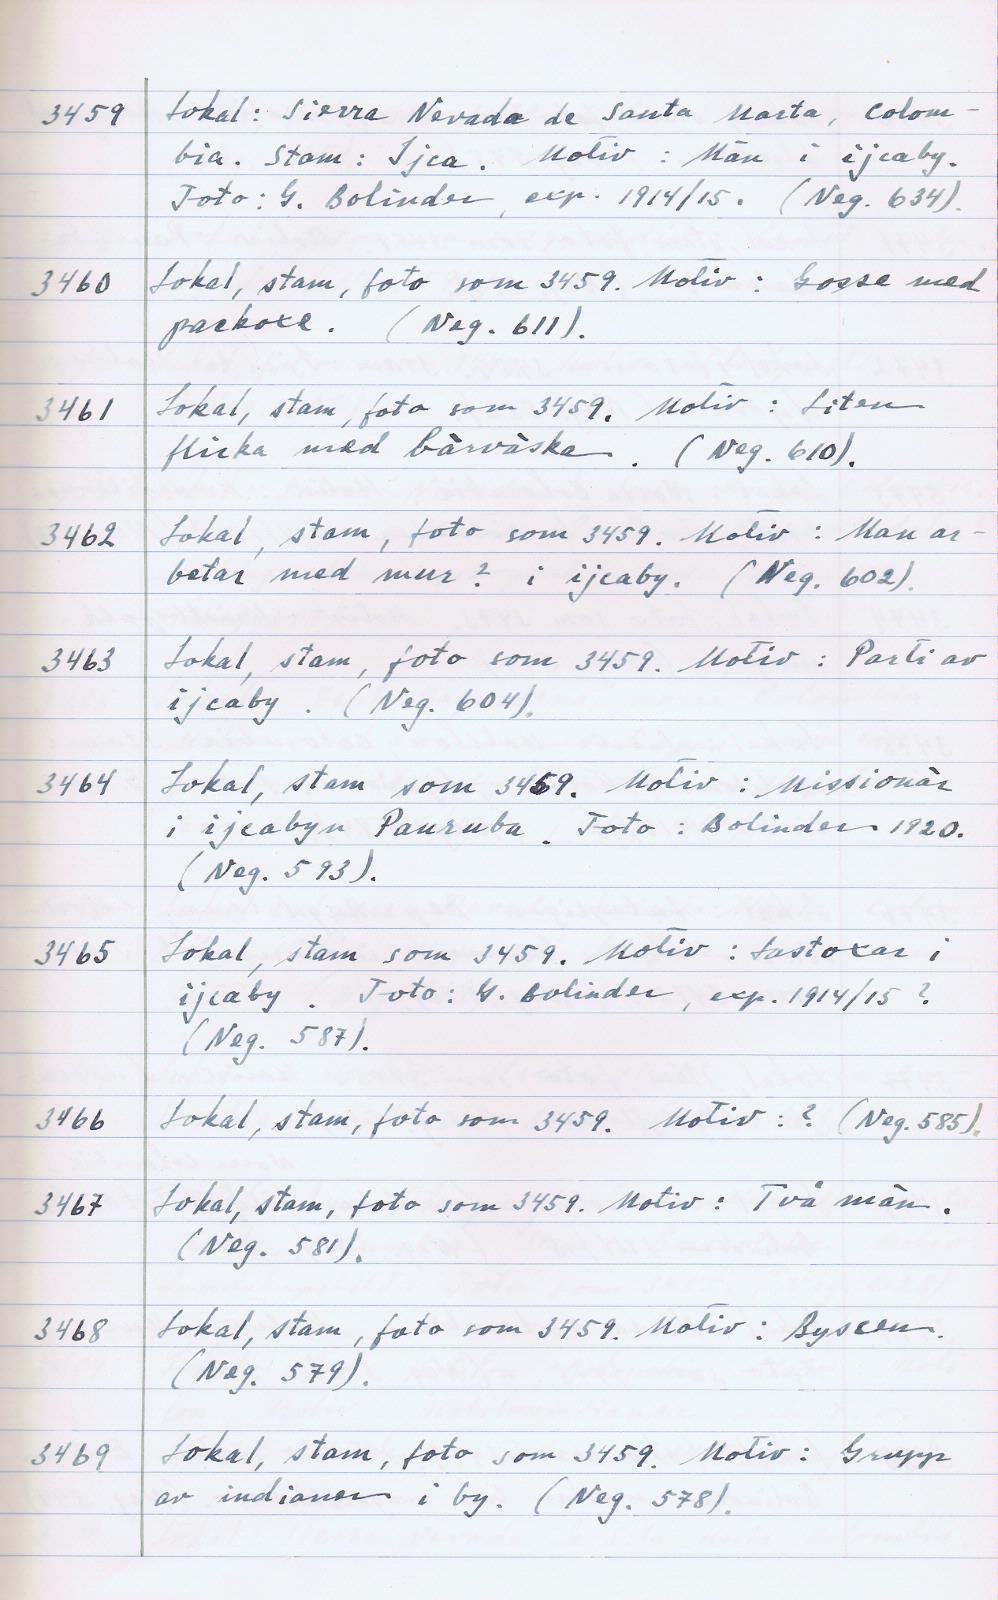 3459 Lokal: Sierra Nevada de Santa Marta, Colom-
bia. Stam: Ijca. Motiv: Män i ijcaby.
Foto: G. Bolinder, exp. 1914/15. (Neg. 634).
3460 Lokal, stam, foto som 3459. Motiv: Gosse med
packoxe. (Neg. 611).
3461 Lokal, stam, foto som 3459. Motiv: Liten
flicka med bärväska. (Neg. 610).
3462 Lokal, stam, foto som 3459. Motiv: Man ar-
betar med mur? i ijcaby. (Neg. 602).
3463 Lokal, stam, foto som 3459. Motiv: Parti av
ijcaby. (Neg. 604).
3464 Lokal, stam som 3459. Motiv: Missionär
i ijcabyn Pauruba. Foto: Bolinder 1920.
(Neg. 593).
3465 Lokal, stam som 3459. Motiv: Lastoxar i
ijcaby. Foto: G. Bolinder, exp. 1914/15?
(Neg. 587).
3466 Lokal, stam, foto som 3459. Motiv: ? (Neg. 585).
3467 Lokal, stam, foto som 3459. Motiv: Två män.
(Neg. 581).
3468 Lokal, stam, foto som 3459. Motiv: Byscen.
(Neg. 579).
3469 Lokal, stam, foto som 3459. Motiv: Grupp
av indianer i by. (Neg. 578).